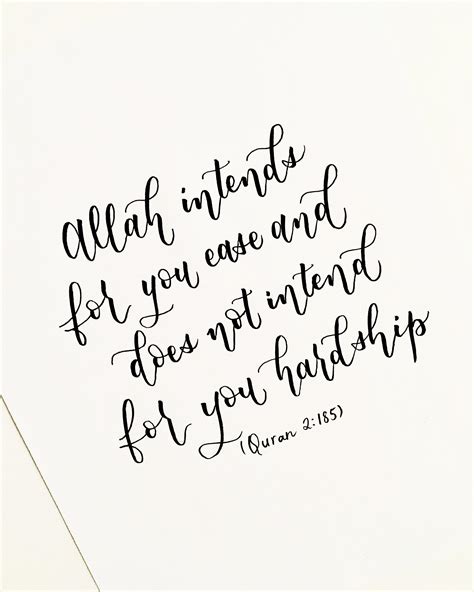 allah intends
for you ease and
does not intend
for you hardship
(Quran 2:185)